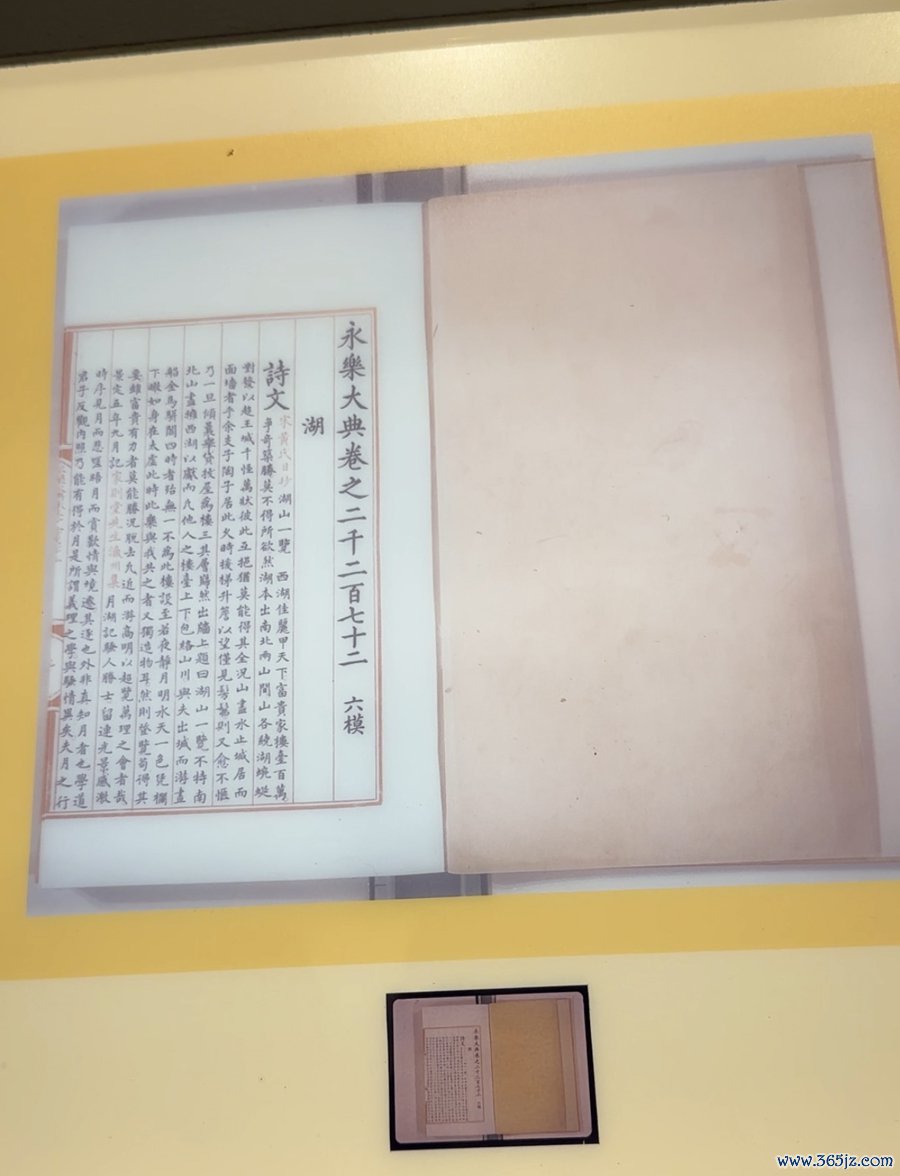 永樂大典卷之二千二百七十二 六模
湖
詩文 宋黃氏日抄 湖山一覽 西湖佳麗甲天下富貴家樓臺百萬
爭奇築勝莫不得所欲然湖本出南北兩山間山各繞湖境蜒
對發以趨王城千怪萬狀彼此互挹猶莫能得其全況山盡水止城居而
面墻者乎余友于陶子居此久時援梯升簷以望僅見髣髴則又愈不愜
乃一旦傾囊樂貸投屋爲樓三其層巋然出牆上題曰湖山一覽不特南
北山盡擁西湖以獻而凡他人之樓臺上下包絡山川與夫出城而游畫
舫金馬駢闐四時者殆無一不爲此樓設至若夜靜月明水天一色凭欄
下瞰如身在太虛此時此樂與我共之者又獨造物耳然則登覽苟得其
要雖富貴有力者莫能勝況脫去凡近而游高明以超覽萬理之會者哉
景定五年九月記家則堂先生瀛州集 月湖記騷人勝士留連光景感激
時序見月而悲 晤月而賞歡情與境遷其逐也外非真知月者也學道
君子反觀內照乃能有得於月是所謂義理之學與騷情異矣夫月之行
www.365jz.com